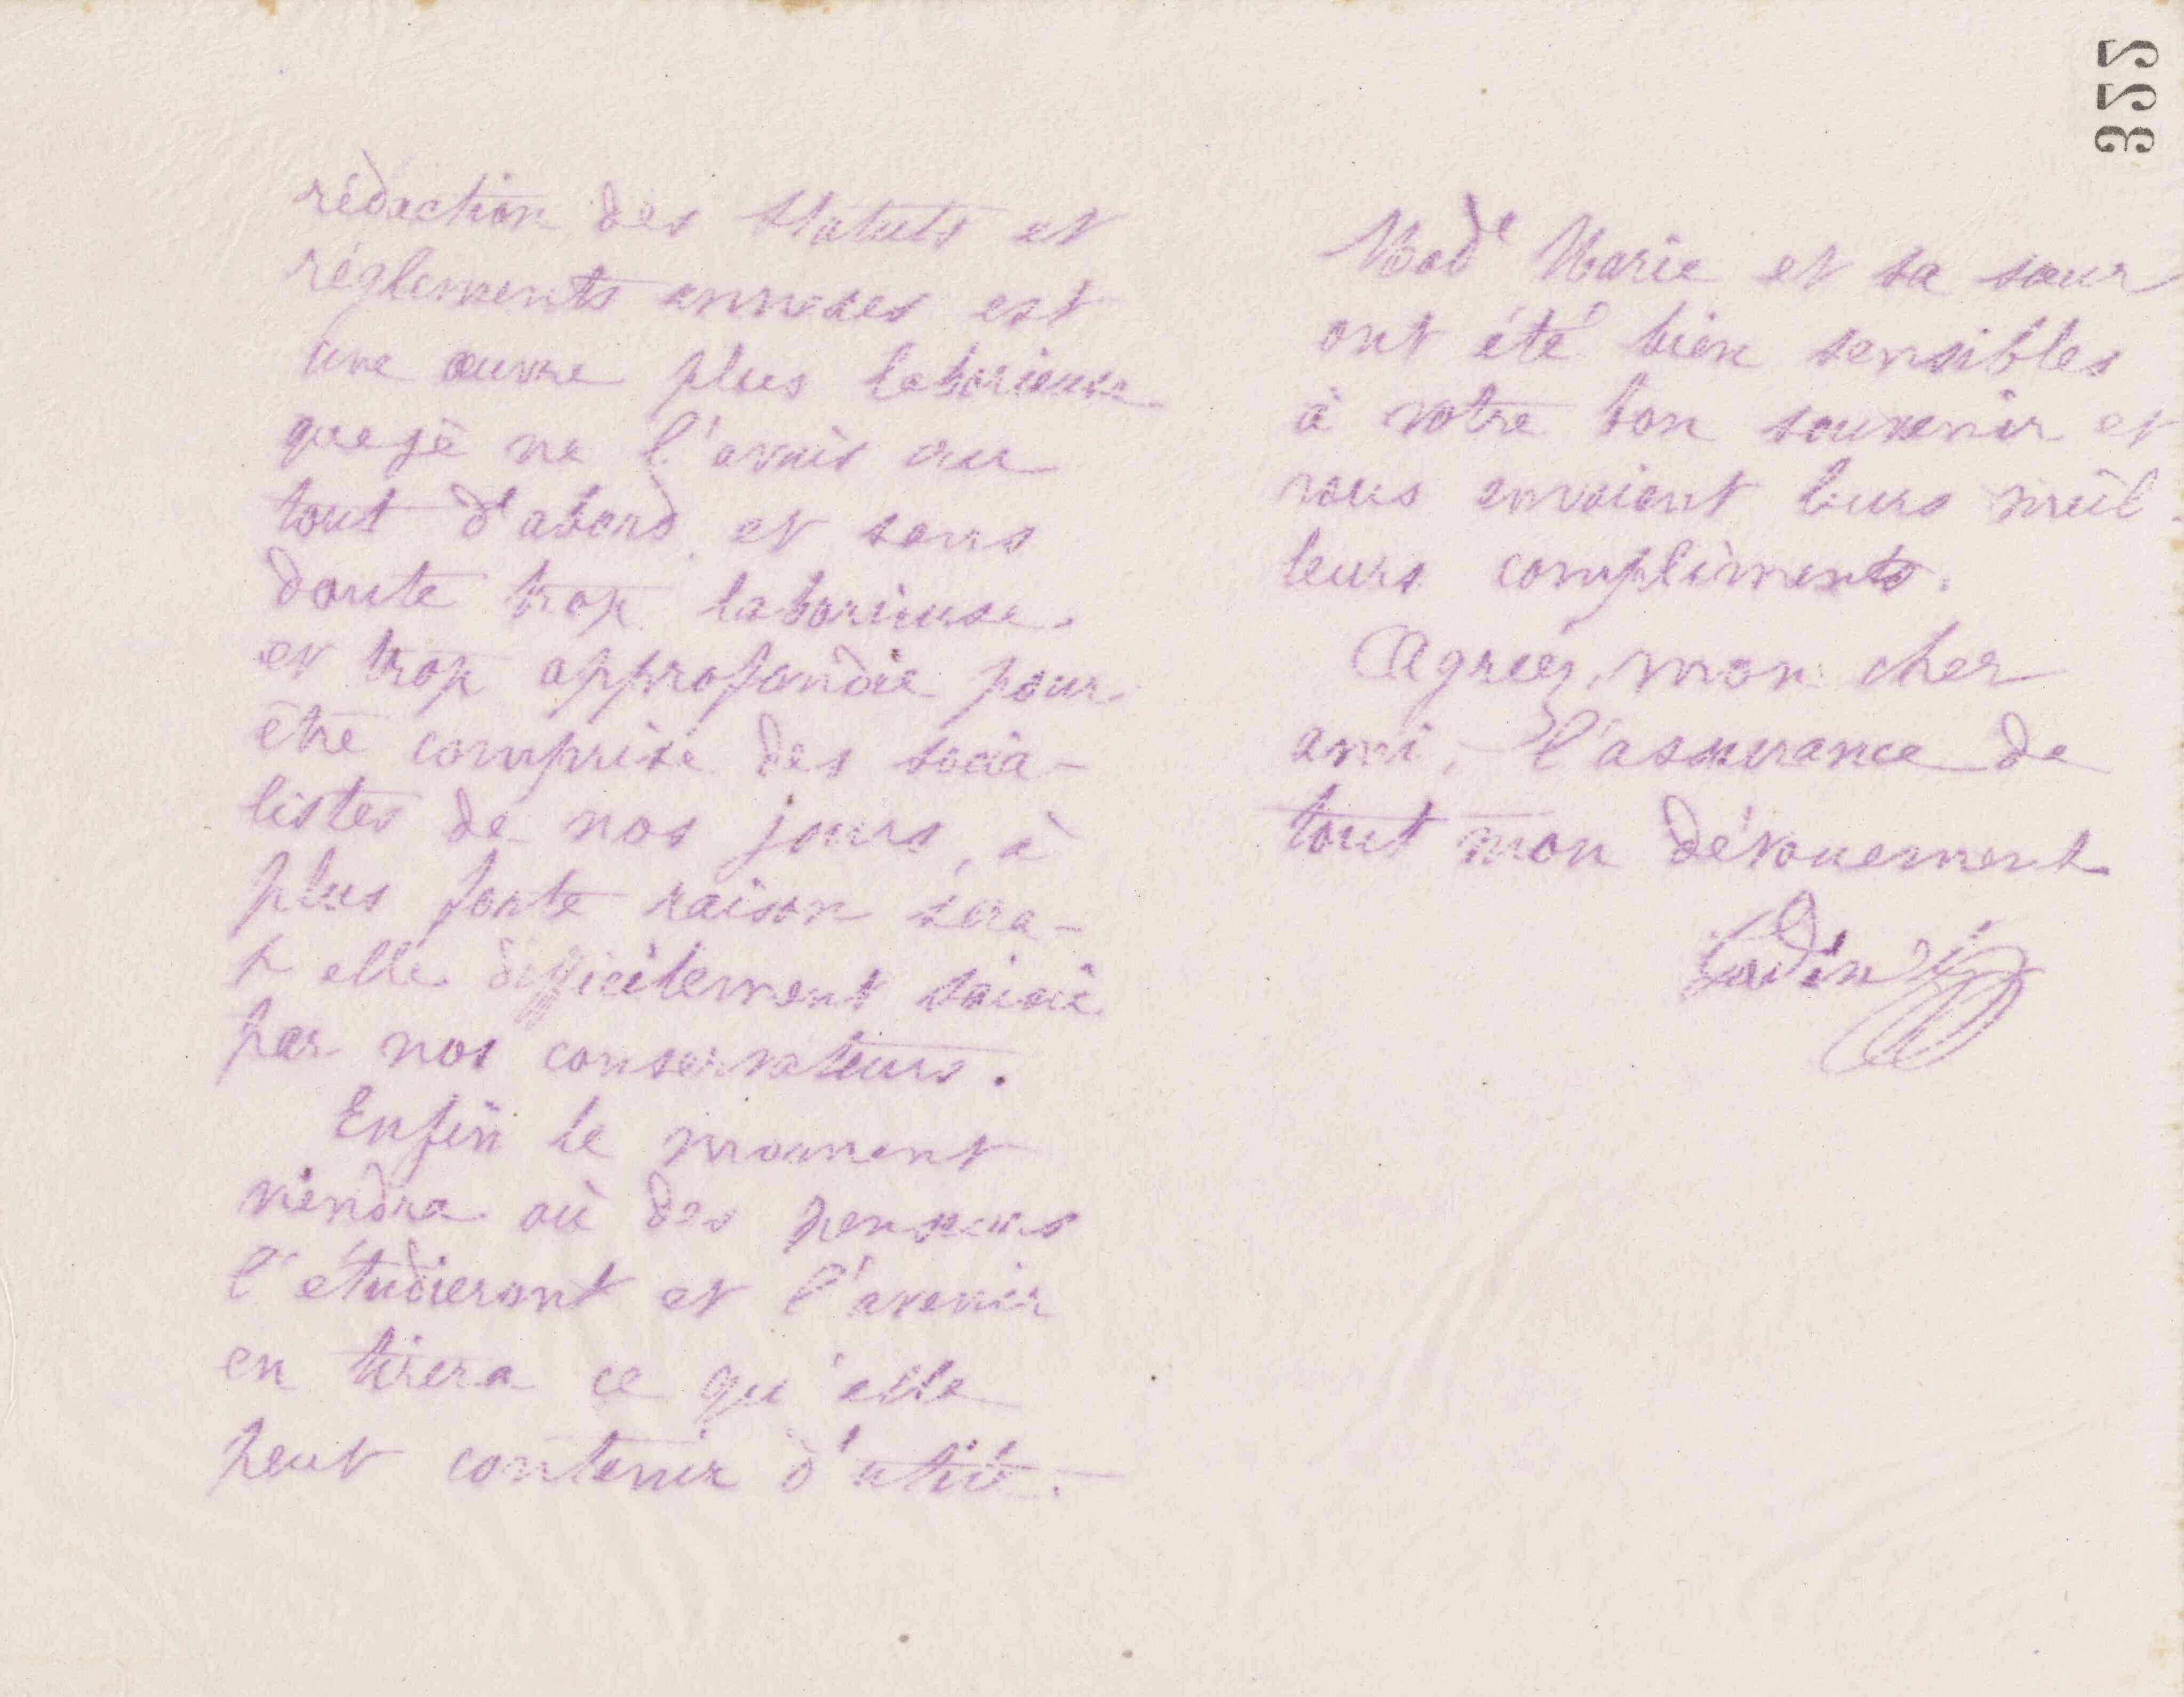 rédaction des statuts et
réglements annexes est
une œuvre plus laborieuse
que je ne l'avais cru
tout d'abord et sans
doute trop laborieuse
et trop approfondie pour
être comprise des socia-
listes de nos jours, à
plus forte raison sera-
t elle difficilement saisie
par nos conservateurs.
Enfin le moment
viendra où des penseurs
l'étudieront et l'avenir
en tirera ce qu'elle
peut contenir d'utile.
355
Mad<sup>e</sup> Marie et sa sœur
ont été bien sensibles
à votre bon souvenir et
vous envoient leurs meil-
leurs compliments.
Agréez, mon cher
ami, l'assurance de
tout mon dévouement
Godin